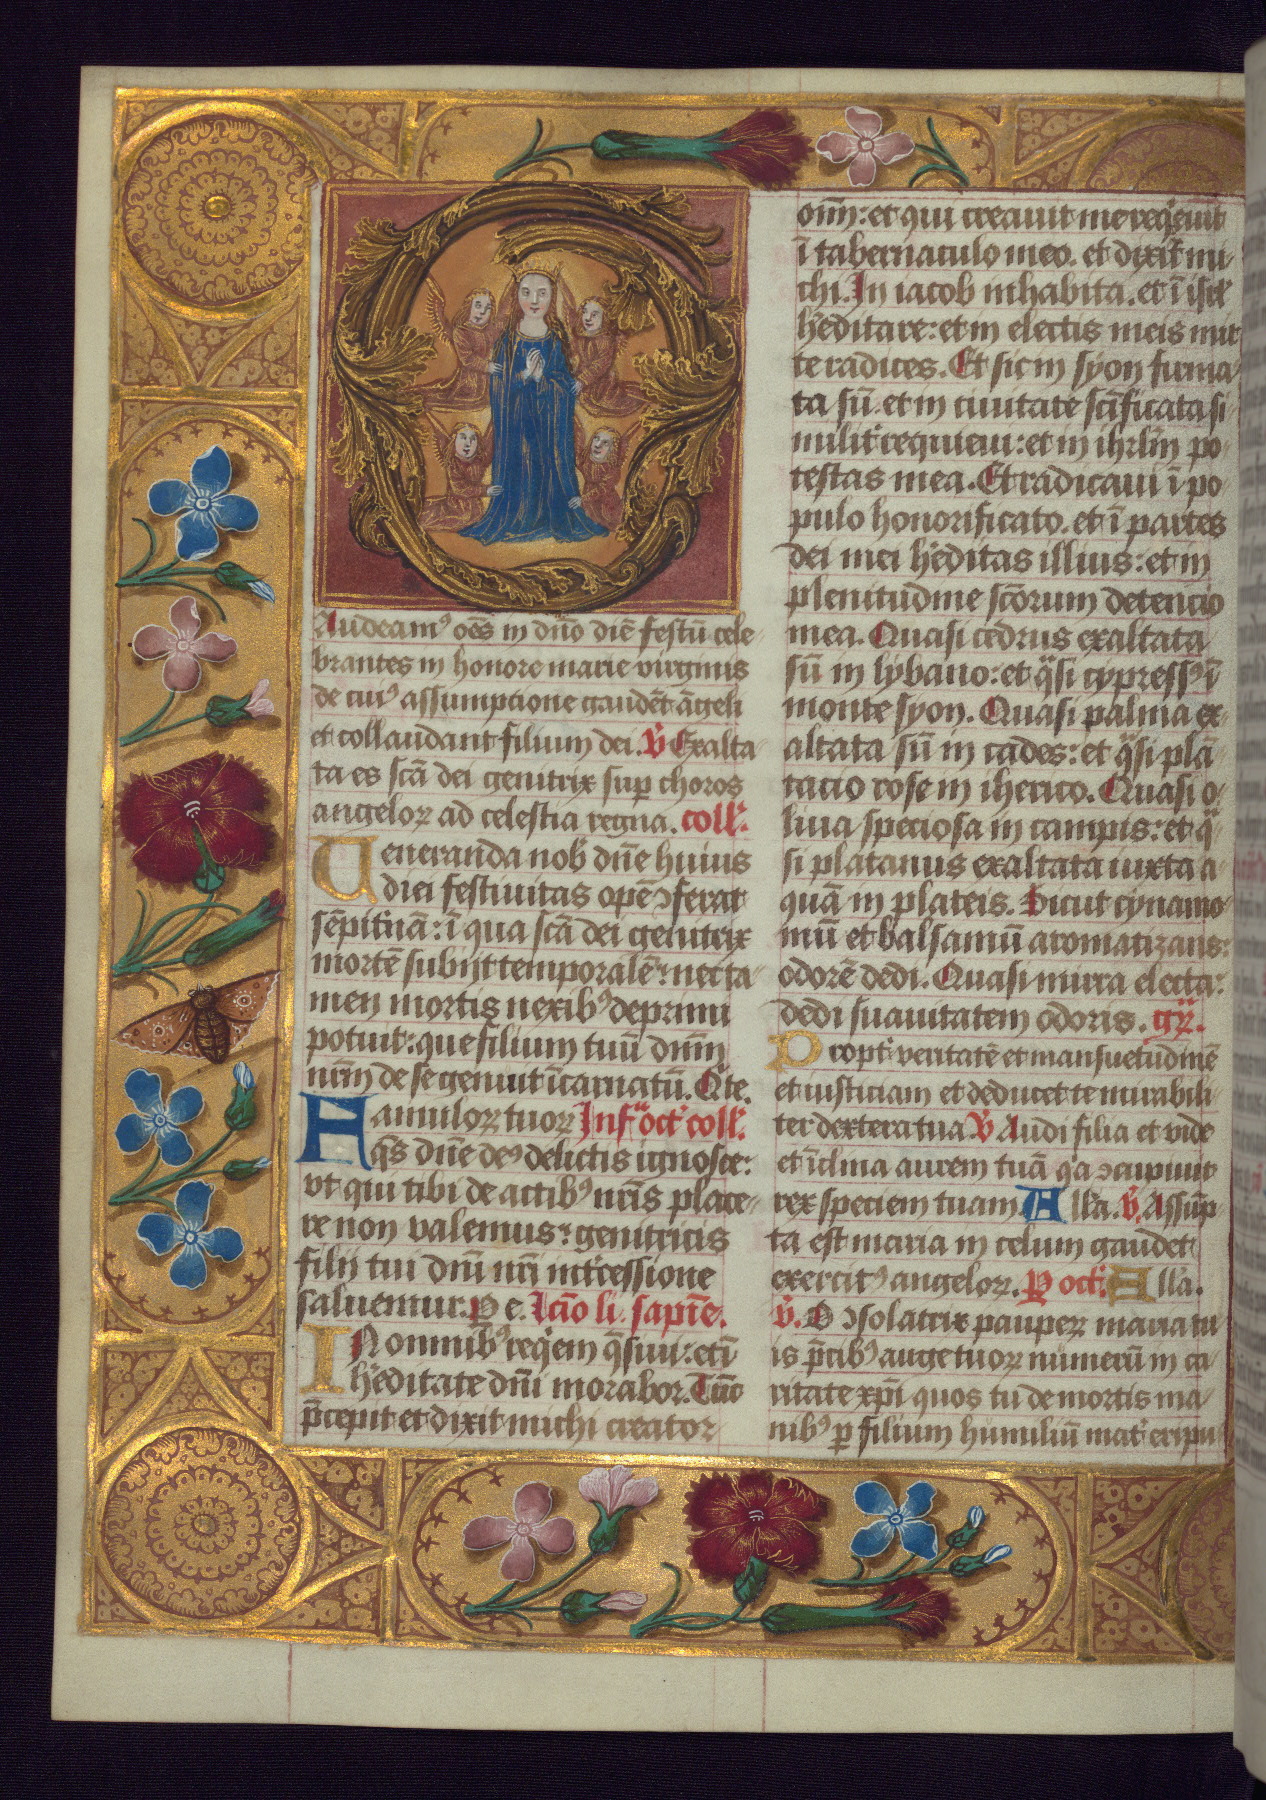 Audeamꝰ oēs in dn̄o diē festū cele
brantes in honore marie virginis
de cuiꝰ assumptione gaudēt āgeli
et collaudant filium dei. ℣ Exalta
ta es scā dei genitrix sup choros
angeloꝝ ad celestia regna. coll'.
Veneranda nob dn̄e huius
diei festiuitas opē ↄferat
sēpit'nā: ī qua scā dei genitrix
mortē subijt temporalē: nec ta
men mortis nexibꝰ deprimi
potuit: que filium tuū dn̄m
nr̄m de se genuit īcarnatū. Q̇ te.
Famuloꝝ tuoꝝ Inf' oct' coll'.
q̄s dn̄e deꝰ delictis ignosce:
vt qui tibi de actibꝰ nr̄is place
re non valemus: genitricis
filij tui dn̄i nr̄i int'cessione
saluemur. P e. lcio li. sapīe.
IN omnibꝰ reqͥem q̄siui: et ī
h'editate dn̄i morabor. Tūc
p̄cepit et dixit michi creator
oīm: et qui creauit me reqͥeuit
ī tabernaculo meo. et dixit mi
chi. In iacob inhabita. et ī isrl'
h'editare: et in electis meis mit
te radices. Et sic in syon firma
ta sū. et in ciuitate sc̄ificata si
milit' requieui: et in ihrl̄m po
testas mea. Et radicaui ī po
pulo honorificato. et ī partes
dei mei h'editas illius: et in
plenitudine sc̄orum detencio
mea. Quasi cedrus exaltata
sū in lybano: et qͣsi cypressꝰ ī
monte syon. Quasi palma ex
altata sū in cades: et qͣsi plā
tacio rose in iherico. Quasi o
liua speciosa in campis: et qͣ
si platanus exaltata iuxta a
quā in plateis. Sicut cynamo
mū et balsamū aromatizans:
odorē dedi. Quasi mirra electa:
dedi suauitatem odoris. gͬ.
Propt' veritatē et mansuetudinē
et iusticiam et deducet te mirabili
ter dextera tua ℣ Audi filia et vide
et īclina aurem tuā qͥa ↄcupiuit
rex speciem tuam. All'a. ℣. Assūp
ta est maria in celum gaudet
exercitꝰ angeloꝝ. P oct': All'a.
℣. O ↄsolatrix pauperꝝ maria tu
is p̄cibꝰ auge tuoꝝ numerū in ca
ritate xp̄i quos tu de mortis ma
nibꝰ p filium humiliū mat' eripu